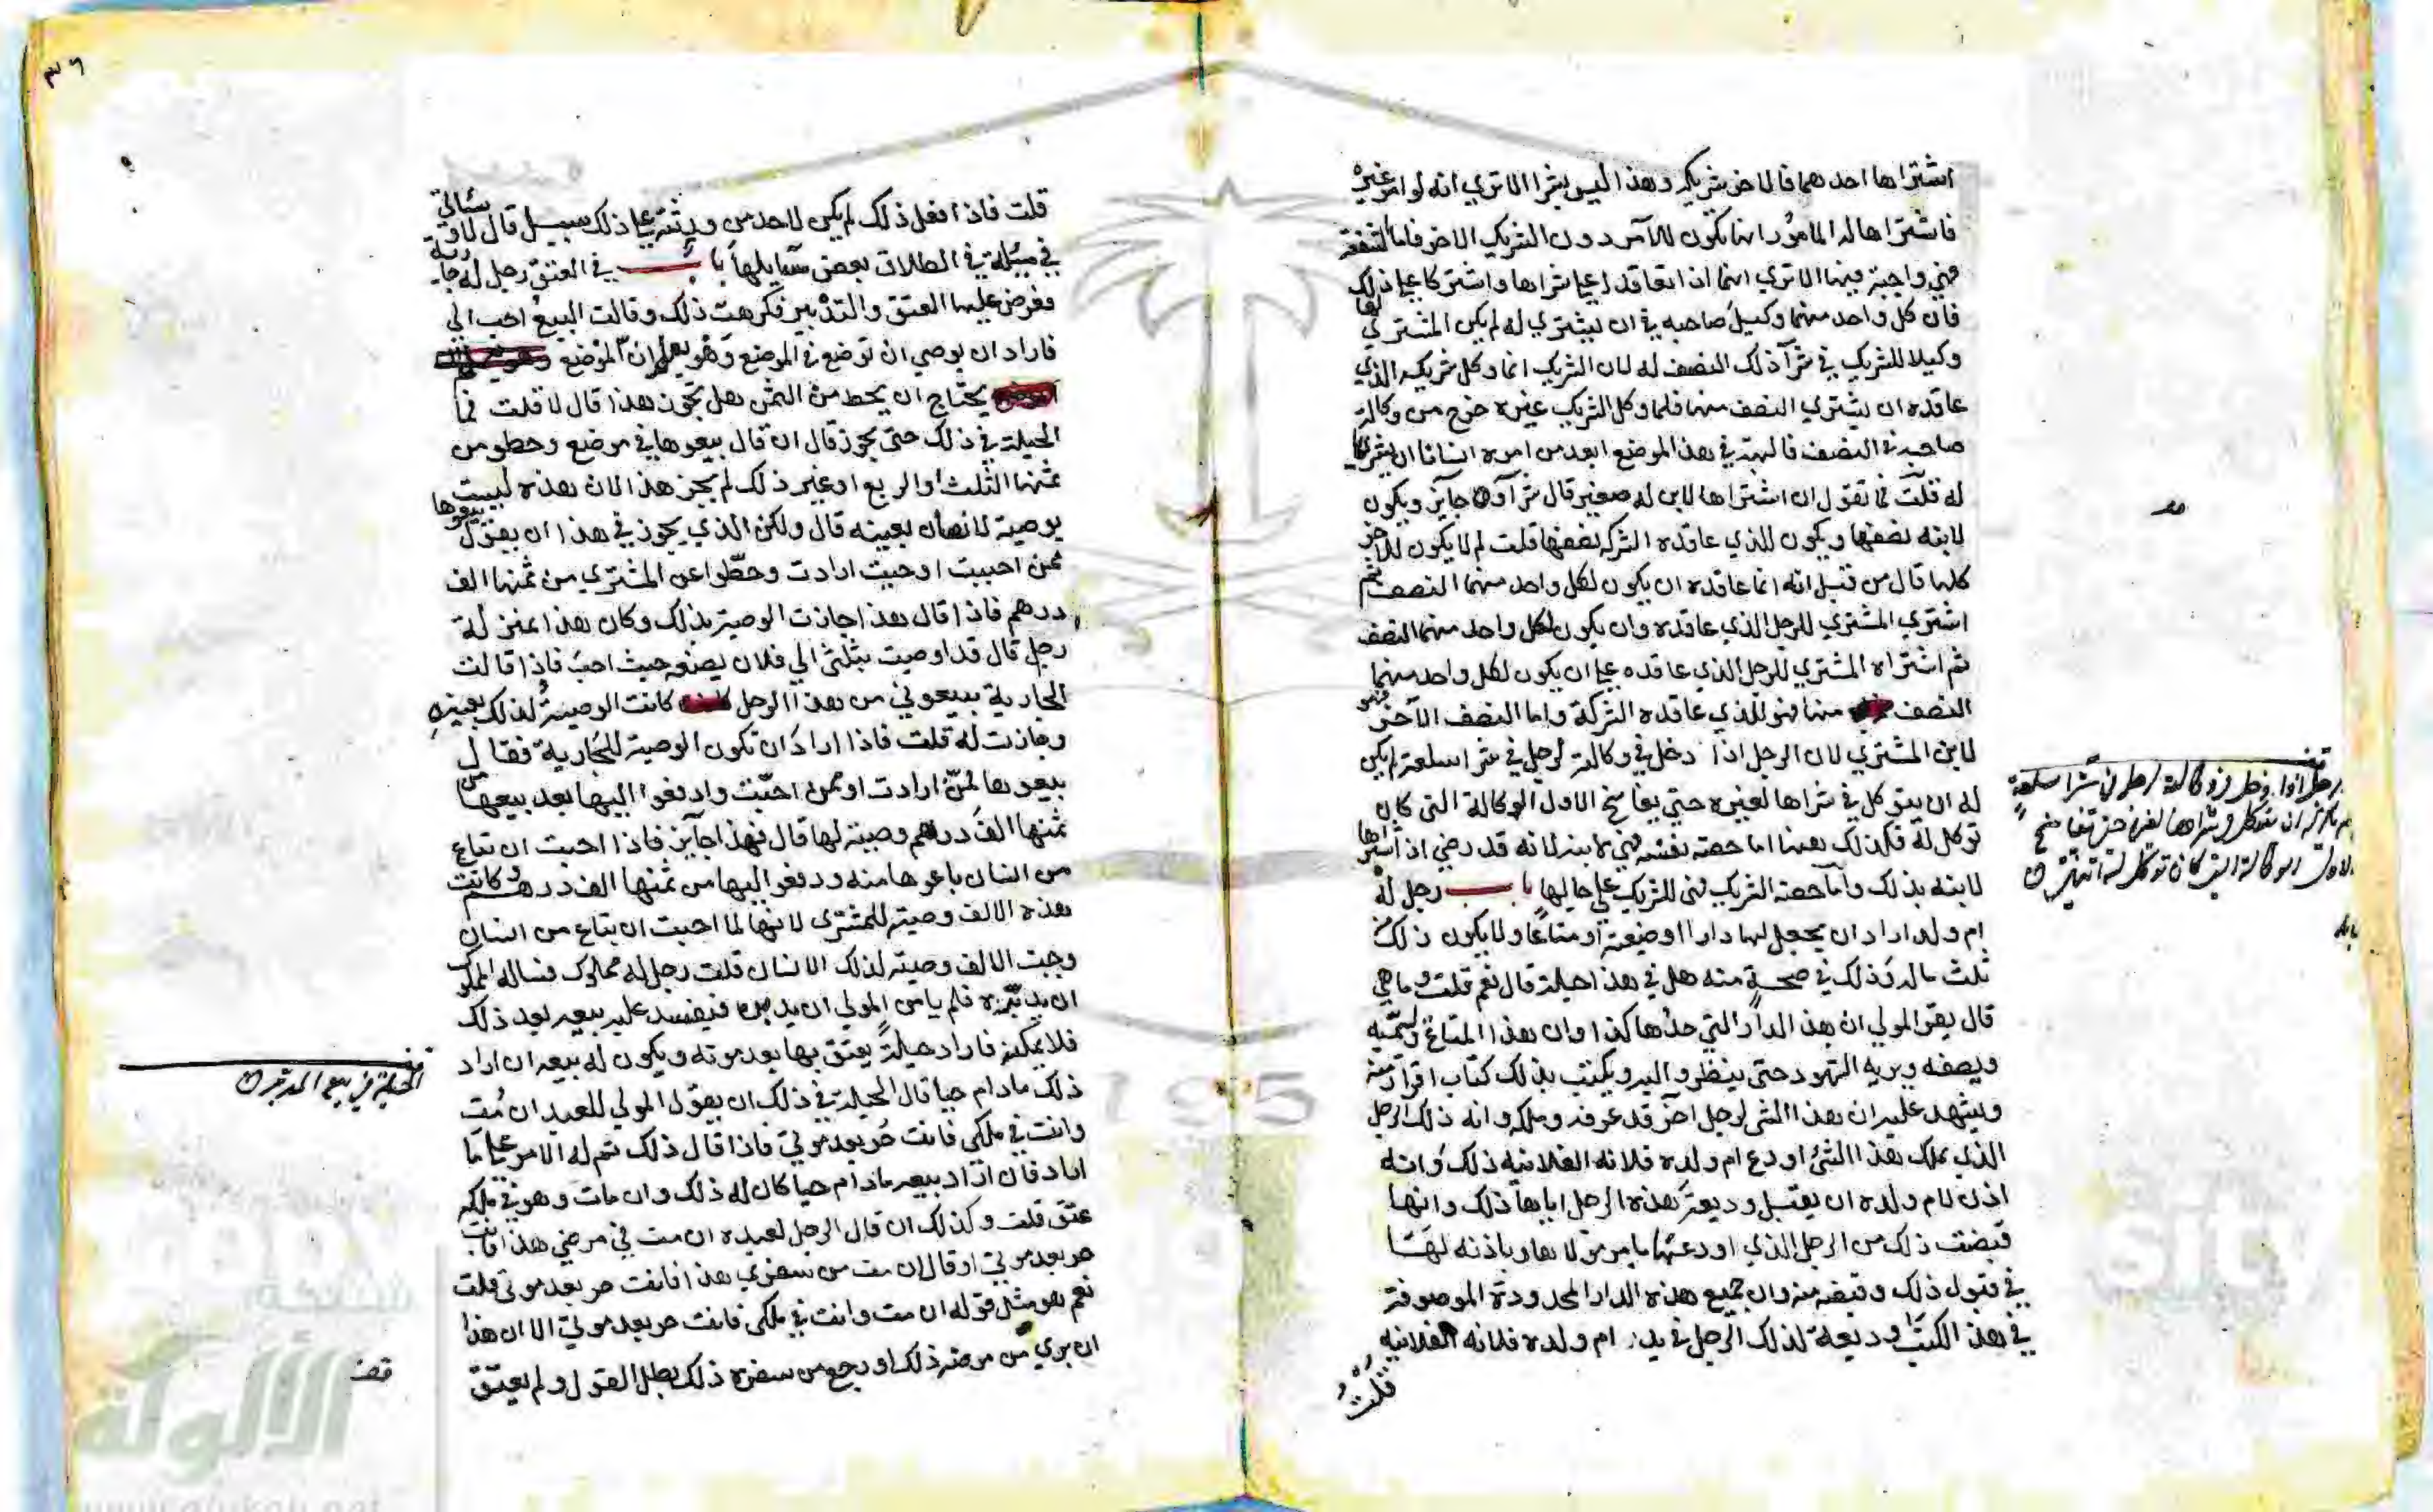 اشتراها احدهما فالاخر شريكه وهذا ليس بشرا الا تري انه لو امر غيره
فاشتراها له المامور انما يكون للآمر دون الشريك الاخر فاما الشفعة
فهي واجبة فيها الا تري انهما اذا تعاقدا علي شراها واشتركا علي ذلك
فان كل واحد منهما وكيل صاحبه في ان يشتري له لم يكن المشتري لها
وكيلا للشريك في شرآ ذلك النصف له لان الشريك انما وكل شريكه الذي
عاقده ان يشتري النصف منها فلما وكل الشريك غيره خرج من وكالة
صاحبه في النصف فالهبة في هذا الموضع ابعد من امره انسانا ان يشتريها
له قلت فما تقول ان اشتراها لابن له صغير قال شرآوه جايز ويكون
لابنه نصفها ويكون للذي عاقده الشركه نصفها قلت لم لا يكون للاخر
كلها قال من قبل انه انما عاقده ان يكون لكل واحد منهما النصف ثم
اشتري المشتري للرجل الذي عاقده وان يكون لكل واحد منهما النصف
ثم اشتراه المشتري للرجل الذي عاقده علي ان يكون لكل واحد منهما
النصف منها فهو للذي عاقده الشركة واما النصف الآخر فهو
لابن المشتري لان الرجل اذا دخل في وكالة لرجل في شرا سلعة لم يكن
له ان يتوكل في شراها لغيره حتي يفاسخ الاول الوكالة التي كان
توكل له فكذلك هينا اما حصة نفسه فهي لابنه لانه قد رضي اذ اشتراها
لابنه بذلك وامآ حصة الشريك فهي للشريك علي حالها باب رجل له
ام ولد اراد ان يجعل لها دارا او ضيعة او متاعا ولا يكون ذلك من
ثلث ماله وذلك في صحة منه هل في هذا حيلة قال نعم قلت وما هي
قال يقر المولي ان هذه الدار التي حدها كذا وان هذا المتاع ويسميه
ويصفه ويريه الشهود حتي ينظروا اليه ويكتب بذلك كتاب اقرار منه
ويشهد عليه ان هذا الشي لرجل اخر قد عرفه وملكه وانه ذلك الرجل
الذي يملك هذا الشئ اودع ام ولده فلانه الفلانيه ذلك وانه
اذن لام ولده ان يقبل وديعة هذه الرجل اياها ذلك وانها
قبضت ذلك من الرجل الذي اودعها بامر مولاها وباذنه لها
في قبول ذلك وقبضه منه وان جميع هذه الدار المحدودة الموصوفة
في هذا الكتاب وديعة لذلك الرجل في يد ام ولده فلانه الفلانيه
قلت
رجل اذا دخل في وكالة رجل في شرا سلعة
لم يكن له ان يتوكل في شراها لغيره حتي يفاسخ
الاول الوكالة التي كان توكل له
قلت فاذا فعل ذلك لم يكن لاحد من ورثته علي ذلك سبيل قال لا
في مسئلة في الطلاق بعض مسايلها باب في العتق رجل له جارية
فعرض عليها العتق والتدبير فكرهت ذلك وقالت البيع احب الي
فاراد ان يوصي ان توضع في الموضع وهو يعلم ان الموضع
يحتاج ان يحط من الثمن هل يجوز هذا قال لا قلت فما
الحيلة في ذلك حتي يجوز قال ان قال بيعوها في موضع وحطو من
ثمنها الثلث او الربع او غير ذلك لم يجز هذا لان هذه ليست
بوصية لانسان بعينه قال ولكن الذي يجوز في هذا ان يقول بيعوها
ممن احببت او حيث ارادت وحطوا عن المشتري من ثمنها الف
درهم فاذا قال هذا جازت الوصية بذلك وكان هذا بمنزلة
رجل قال قد اوصيت بثلثي الي فلان يضعه حيث احب فاذا قالت
الجارية بيعوني من هذا الرجل كانت الوصية لذلك بعينه
وجازت له قلت فاذا اراد ان تكون الوصية للجارية فقال
بيعوها لمن ارادت او ممن احبت وادفعوا اليها بعد بيعها من
ثمنها الف درهم وصية لها قال فهذا جايز فاذا احبت ان تباع
من انسان باعوها منه ودفعوا اليها من ثمنها الف درهم وكانت
هذه الالف وصية للمشتري لانها لما احبت ان تباع من انسان
وجبت الالف وصية لذلك الانسان قلت رجل له مملوك فساله المملوك
ان يدبره فلم يامن المولي ان يدبره فيفسد عليه بيعه بعد ذلك
فلا يمكنه فاراد حيلة يعتق بها بعد موته ويكون له بيعه ان اراد
ذلك مادام حيا قال الحيلة في ذلك ان يقول المولي للعبد ان مت
وانت في ملكي فانت حر بعد موتي فاذا قال ذلك تم له الامر علي ما
اراد فان اراد بيعه مادام حيا كان له ذلك وان مات وهو في ملكه
عتق قلت وكذلك ان قال الرجل لعبده ان مت في مرضي هذا فانت
حر بعد موتي او قال ان مت من سفري هذا فانت حر بعد موتي قلت
نعم هو مثل قوله ان مت وانت في ملكي فانت حر بعد موتي الا ان هذا
ان بري من مرضه ذلك او رجع من سفره ذلك بطل القول ولم يعتق
الحيلة في بيع المدبر
قف
٣٦
شبكة
الألوكة
www.alukah.net